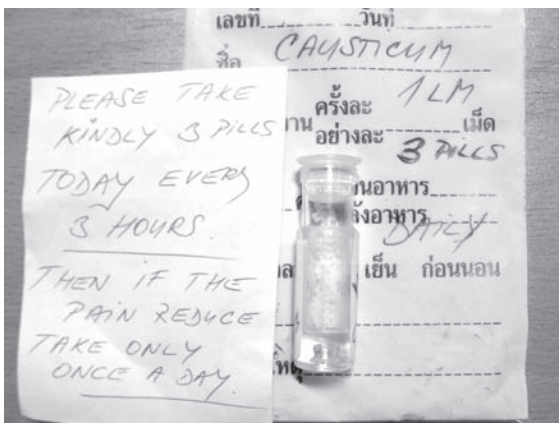 เลขที่ วันที่
ชื่อ CAUSTICUM
1 LM
ครั้งละ
อย่างละ เม็ด
3 PILLS
อาหาร
ังอาหาร
DAILY
เย็น ก่อนนอน
PLEASE TAKE
KINDLY 3 PILLS
TODAY EVERY
3 HOURS.
THEN IF THE
PAIN REDUCE
TAKE ONLY
ONCE A DAY.